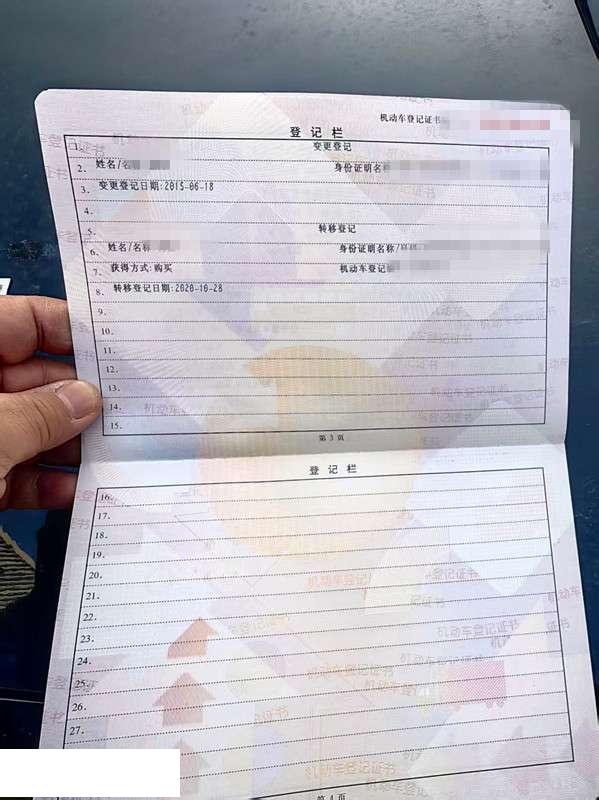 机动车登记证书
登记栏
1. 变更登记
2. 姓名/名 身份证明名称
3. 变更登记日期:2015-06-18
4.
5. 转移登记
6. 姓名/名称 身份证明名称/
7. 获得方式:购买 机动车登记
8. 转移登记日期:2020-10-28
9.
10.
11.
12.
13.
14.
15.
第 3 页
登记栏
16.
17.
18.
19.
20.
21.
22.
23.
24.
25.
26.
27.
第 4 页